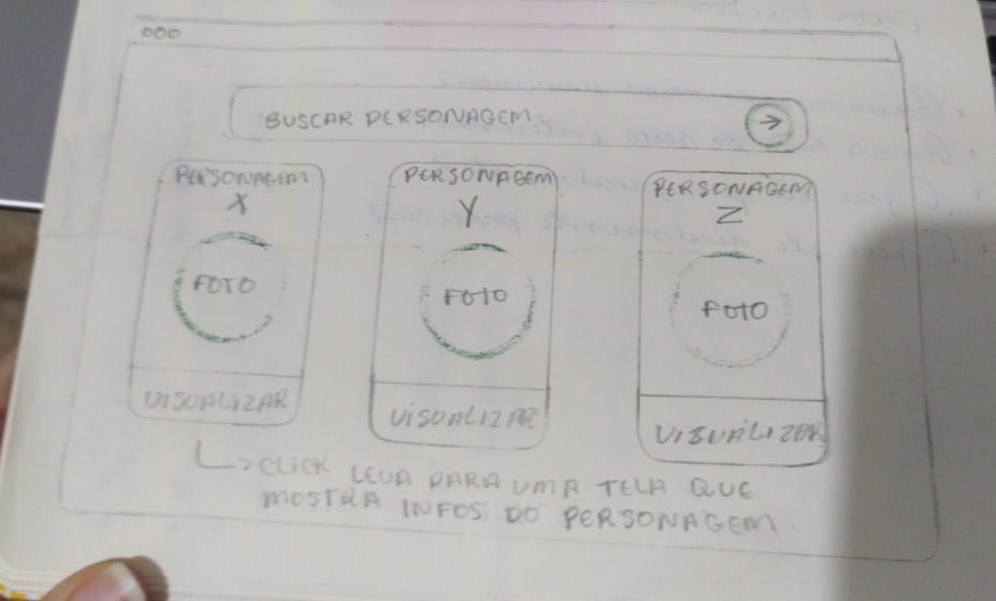 BUSCAR PERSONAGEM →
PERSONAGEM
X
FOTO
VISUALIZAR
PERSONAGEM
Y
FOTO
VISUALIZAR
PERSONAGEM
Z
FOTO
VISUALIZAR
CLICK LEVA PARA UMA TELA QUE
MOSTRA INFOS DO PERSONAGEM